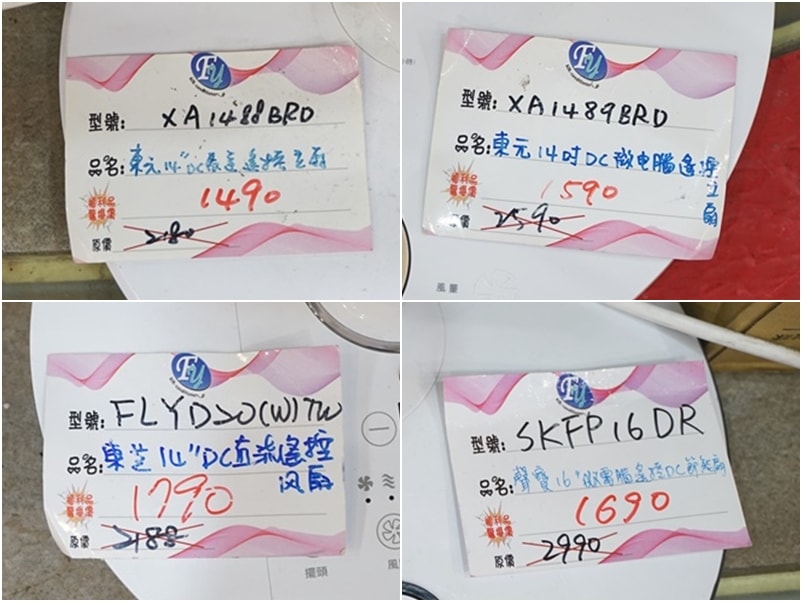 FY
型號: XA1488BRD
品名: 東元14"DC變頻遙控立扇
福利品
驚爆價
1490
原價 2180
FY
型號: XA1489BRD
品名: 東元14吋DC微電腦遙控立扇
福利品
驚爆價
1590
原價 2590
風量
FY
型號: FLYD50(W)TW
品名: 東芝14"DC直流遙控风扇
福利品
驚爆價
1790
原價
擺頭
風
FY
型號: SKFP16DR
品名: 聲寶16"微電腦遙控DC節能扇
福利品
驚爆價
1690
原價 2990